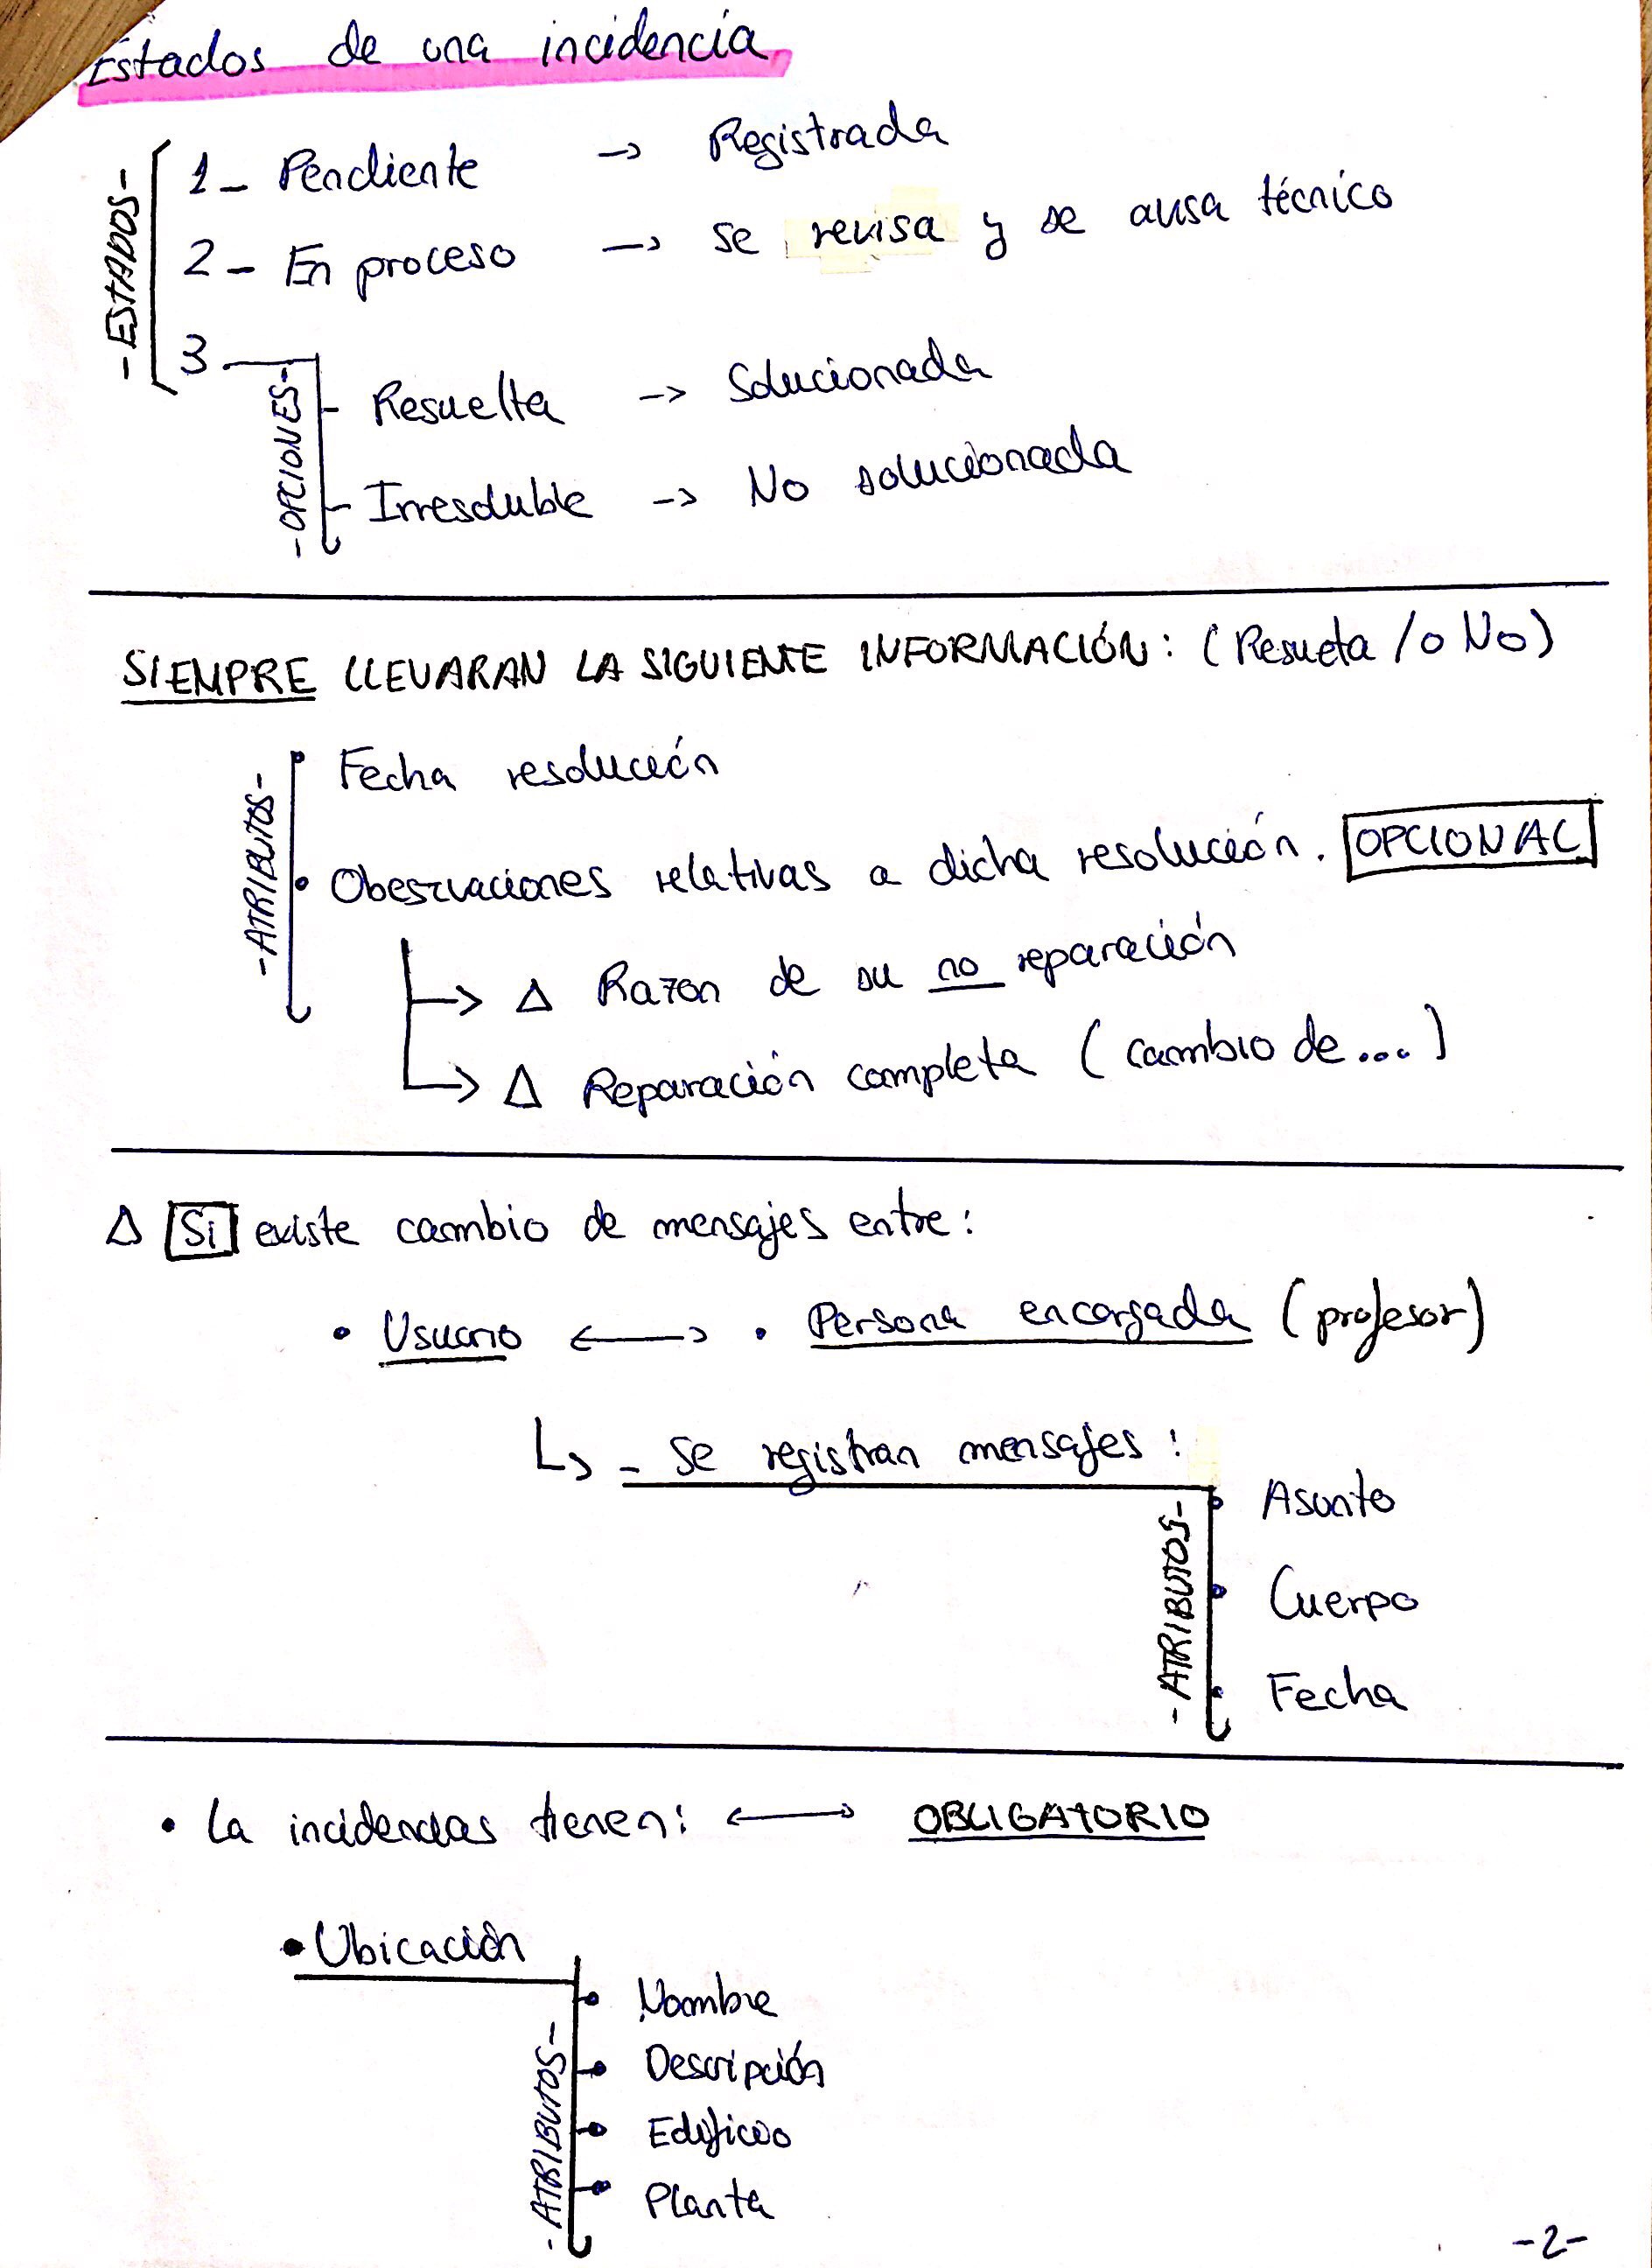 Estados de una incidencia
- ESTADOS -
1 - Pendiente -> Registrada
2 - En proceso -> se revisa y se avisa técnico
3
- OPCIONES -
Resuelta -> Solucionada
Irresoluble -> No solucionada
SIEMPRE LLEVARAN LA SIGUIENTE INFORMACIÓN: (Resueta / o No)
- ATRIBUTOS -
• Fecha resolución
• Obesrvaciones relativas a dicha resolución. OPCIONAL
-> Δ Razon de su no reparación
-> Δ Reparación completa (cambio de...)
Δ Si existe cambio de mensajes entre:
• Usuario <-> • Persona encargada (profesor)
↳ - se registran mensajes:
- ATRIBUTOS -
• Asunto
• Cuerpo
• Fecha
• La incidencias tienen: <-> OBLIGATORIO
• Ubicación
- ATRIBUTOS -
• Nombre
• Descripción
• Edificio
• Planta
-2-